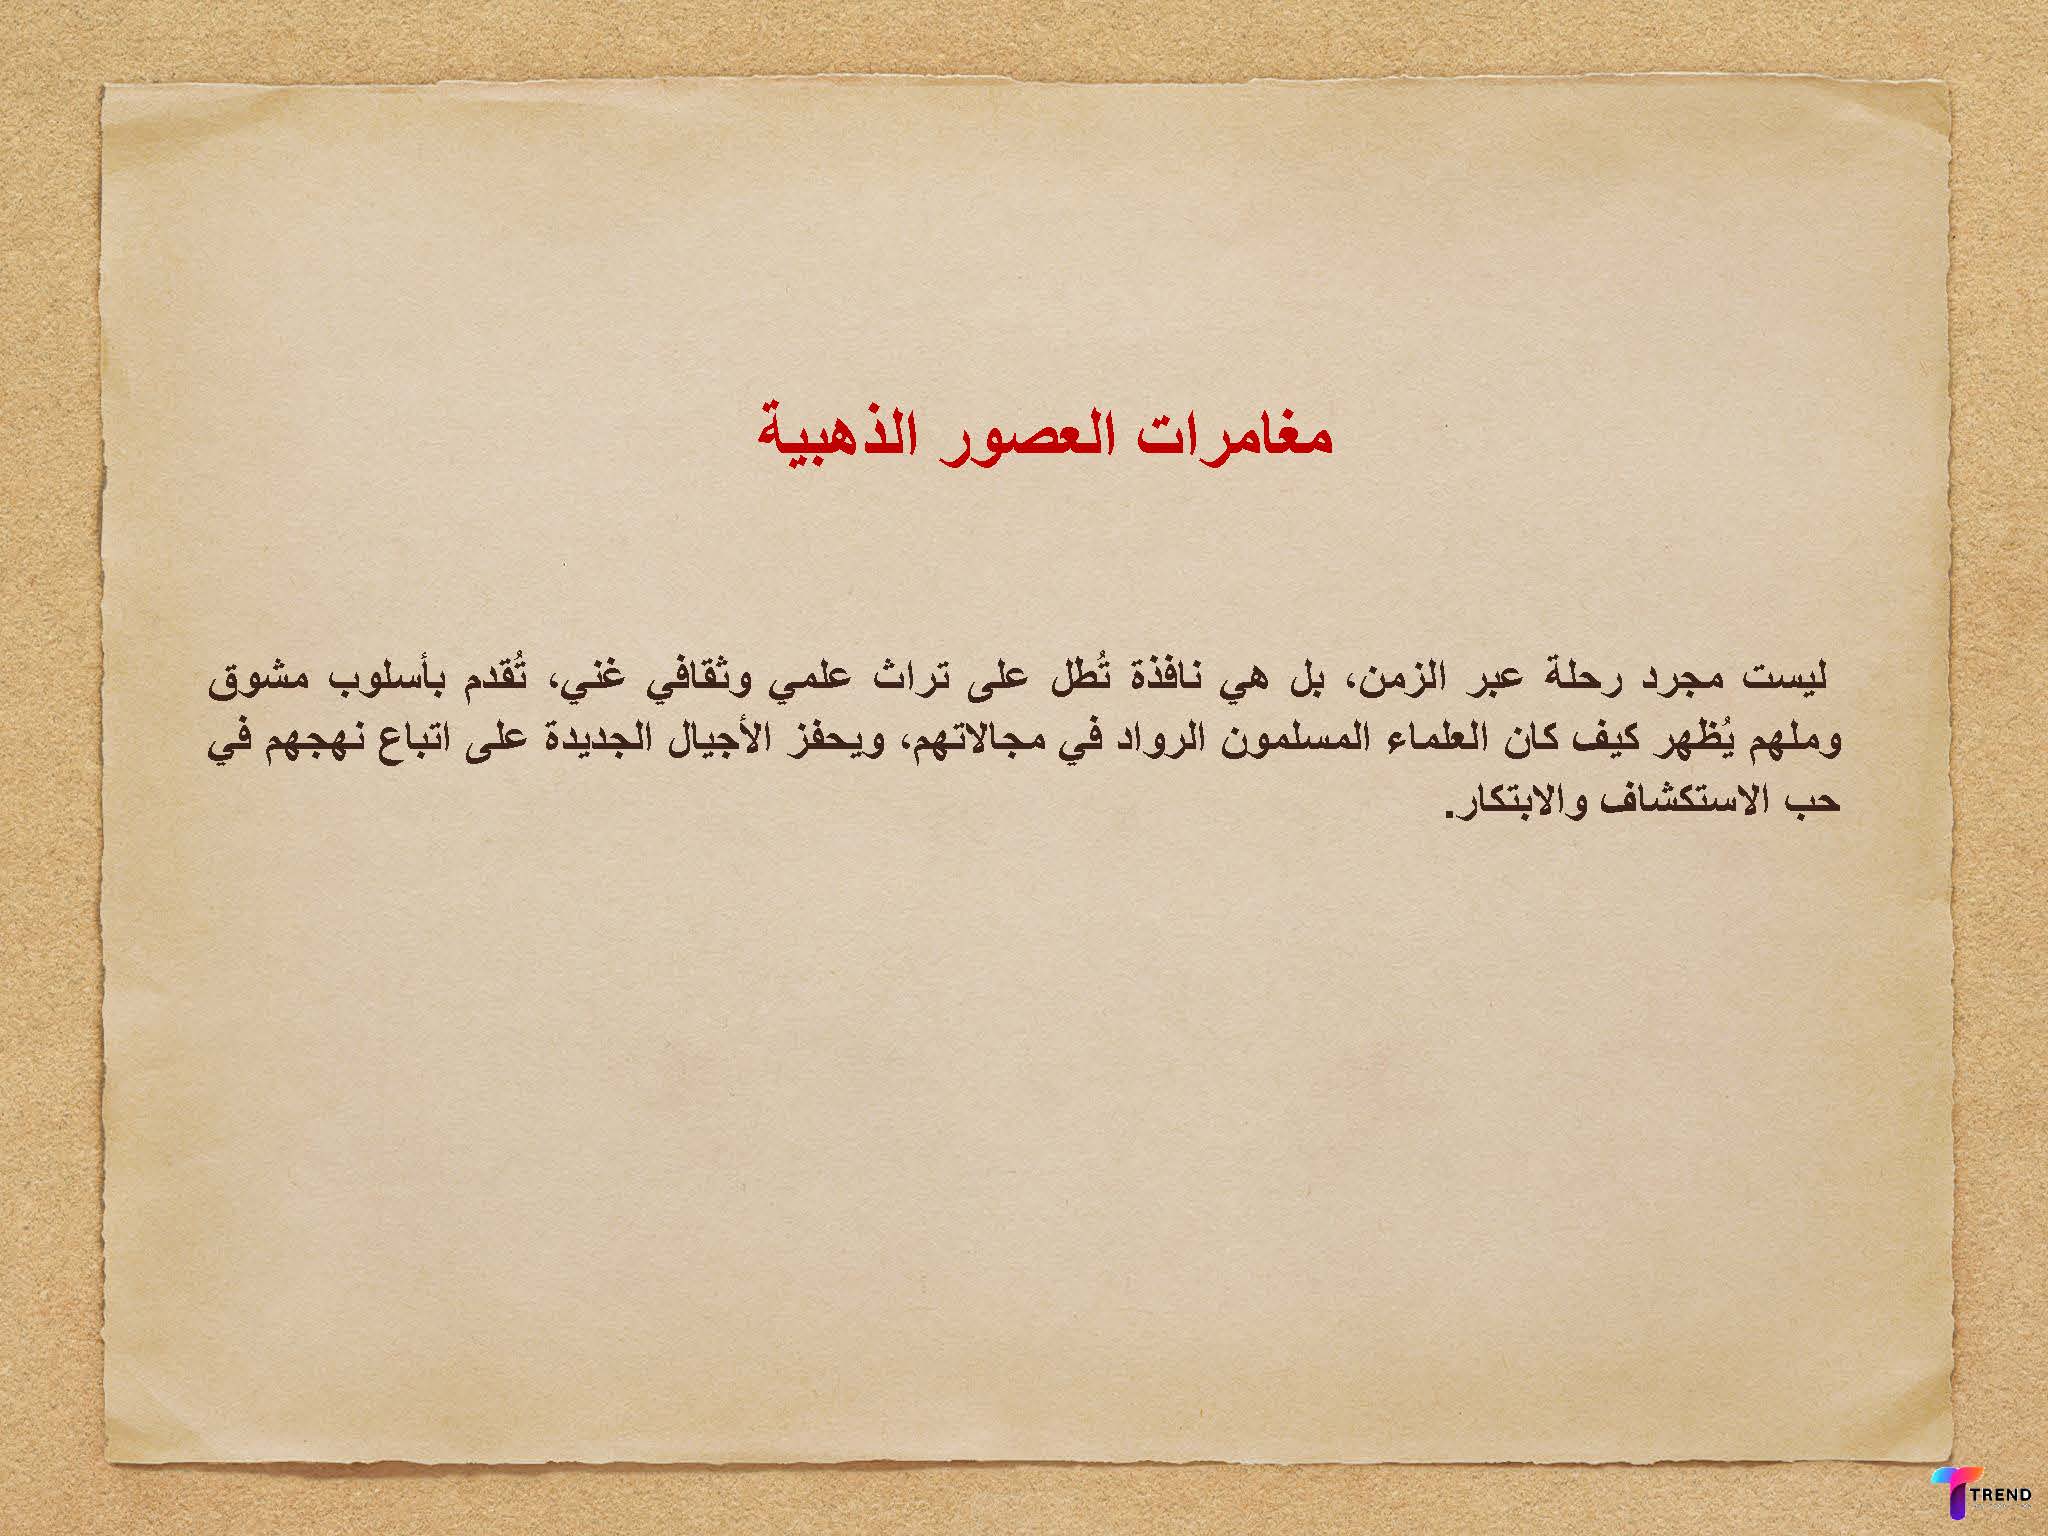 مغامرات العصور الذهبية
ليست مجرد رحلة عبر الزمن، بل هي نافذة تُطل على تراث علمي وثقافي غني، تُقدم بأسلوب مشوق
وملهم يُظهر كيف كان العلماء المسلمون الرواد في مجالاتهم، ويحفز الأجيال الجديدة على اتباع نهجهم في
حب الاستكشاف والابتكار.
TREND